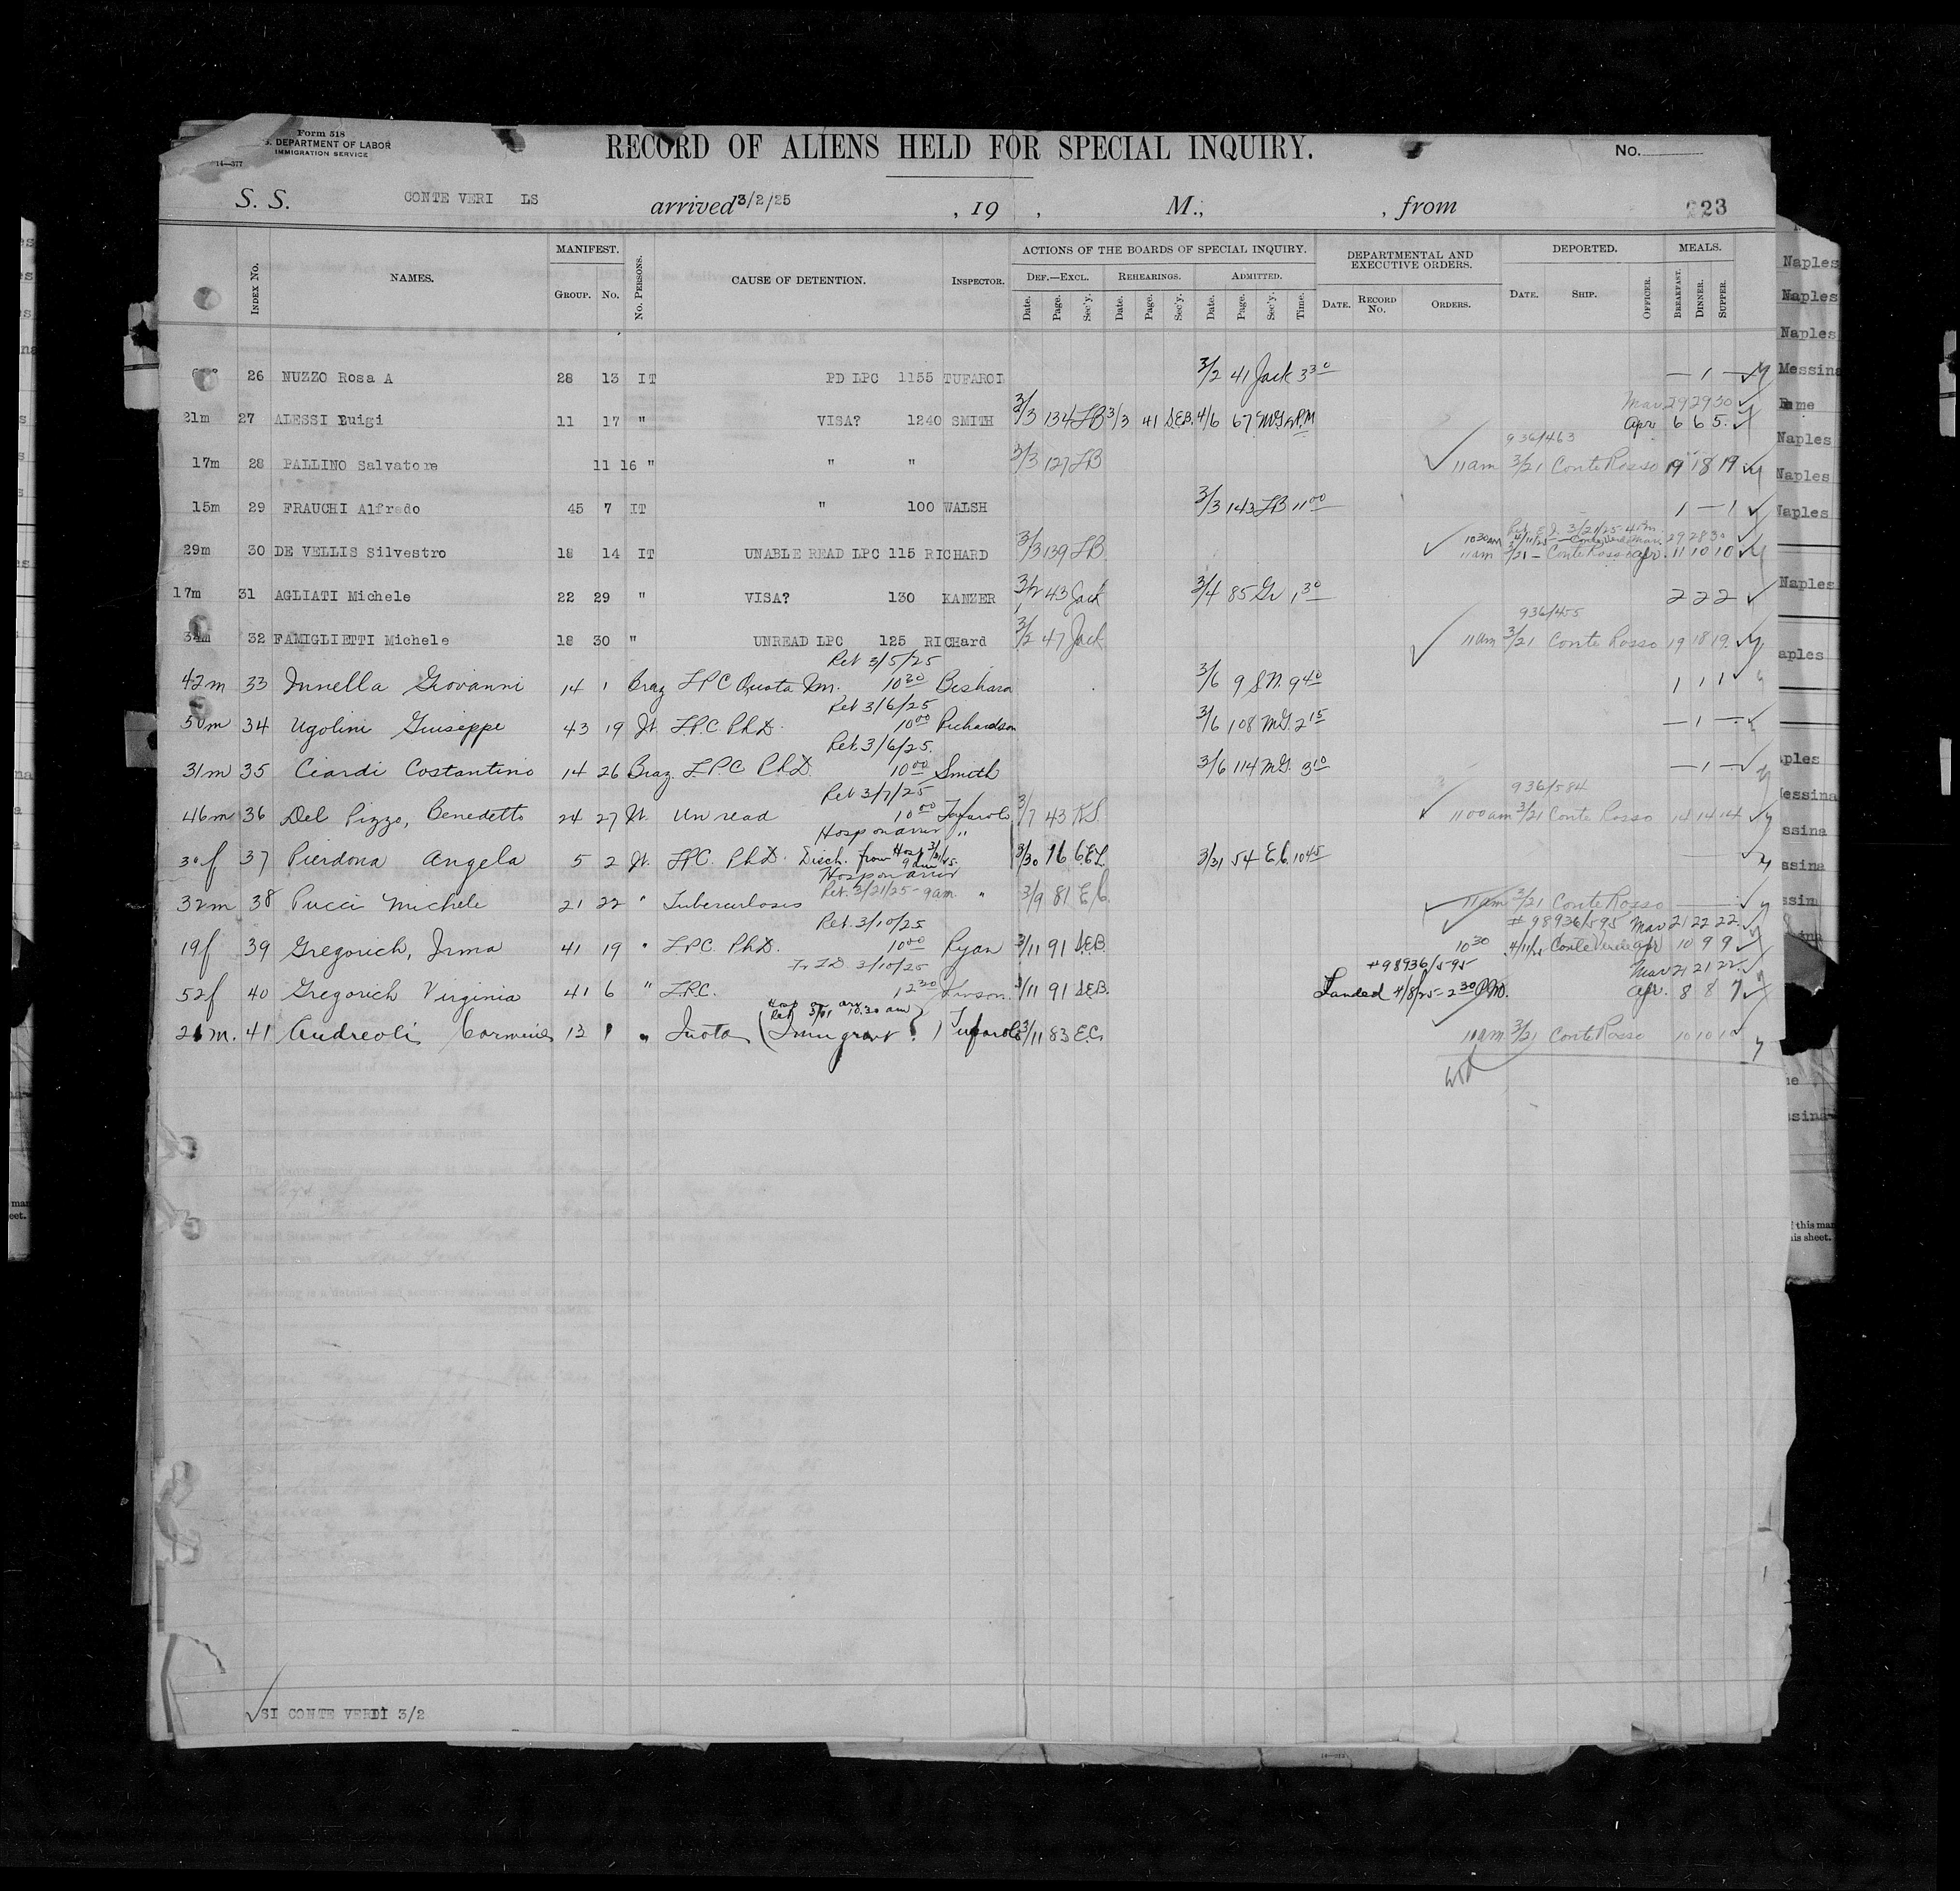 Form 518
S. DEPARTMENT OF LABOR
IMMIGRATION SERVICE
14—377
RECORD OF ALIENS HELD FOR SPECIAL INQUIRY.
No.
S. S. CONTE VERI LS arrived 3/2/25 , 19 , M., , from 223
INDEX NO. NAMES. MANIFEST. GROUP. NO. NO. PERSONS. CAUSE OF DETENTION. INSPECTOR. ACTIONS OF THE BOARDS OF SPECIAL INQUIRY. DEF.—EXCL. Date. Page. Sec'y. REHEARINGS. Date. Page. Sec'y. ADMITTED. Date. Page. Sec'y. Time. DEPARTMENTAL AND EXECUTIVE ORDERS. DATE. RECORD NO. ORDERS. DEPORTED. DATE. SHIP. OFFICER. MEALS. BREAKFAST. DINNER. SUPPER.
26 NUZZO Rosa A 28 13 IT PD LPC 1155 TUFAROL 3/2 41 Jack 3 30 — 1 —
Mar 29 29 30
21m 27 ALESSI Luigi 11 17 " VISA? 1240 SMITH 3/3 134 LB 3/3 41 S.E.B. 4/6 67 MG 2 P.M Apr 6 6 5
936/463
17m 28 PALLINO Salvatore 11 16 " " " 3/3 127 LB 11am 3/21 Conte Rosso 19 18 19
15m 29 FRAUCHI Alfredo 45 7 IT " 100 WALSH 3/3 143 LB 11 00 1 — 1
1030am 4/11/25 Conte Verde Mar. 29 28 30
29m 30 DE VELLIS Silvestro 18 14 IT UNABLE READ LPC 115 RICHARD 3/3 139 LB 11am 3/21 — Conte Rosso Apr. 11 10 10
17m 31 AGLIATI Michele 22 29 " VISA? 130 KANZER 3/2 43 Jack 3/4 85 Gr 1 30 2 2 2
936/455
34m 32 FAMIGLIETTI Michele 18 30 " UNREAD LPC 125 RICHard 3/2 47 Jack 11am 3/21 Conte Rosso 19 18 19
Ret 3/5/25
42m 33 Innella Giovanni 14 1 Braz LPC Quota Im. 10 30 Beshara 3/6 9 S.N. 9 40 1 1 1
Ret 3/6/25
50m 34 Ugolini Guiseppe 43 19 It. L.P.C. Ph.D. 10 00 Richardson 3/6 108 M.G. 2 15 — 1 —
Ret. 3/6/25.
31m 35 Ciardi Costantino 14 26 Braz. L.P.C Ph.D. 10 00 Smith 3/6 114 M.G. 3 10 — 1 —
Ret 3/7/25 936/584
46m 36 Del Pizzo, Benedetto 24 27 It. Unread 10 00 Tufarolo 3/7 43 K.S. 11 00 am 3/21 Conte Rosso 14 14 14
Hosp on arriv "
30f 37 Pierdona Angela 5 2 It. LPC. Ph.D. Disch. from Hosp 3/31/25 9am 3/30 16 3/31 54 E.C. 10 45
Hosp on arriv
32m 38 Pucci Michele 21 22 " Tuberculosis Ret. 3/21/25 - 9am. " 3/9 81 E.C. 11am 3/21 Conte Rosso
Ret. 3/10/25 # 98936/595 Mar 21 22 22
19f 39 Gregorich, Irma 41 19 " L.P.C. Ph.D. 10 00 Ryan 3/11 91 S.E.B. 10 30 4/11/25 Conte Verde Apr 10 9 9
3/10/25 #98936/595 Mar 21 21 22
52f 40 Gregorich Virginia 41 6 " L.P.C. 12 30 Johnson 3/11 91 S.E.B. Landed 4/8/25 - 2 30 P.M. Apr. 8 8 7
Hosp on arr Ret 10.30 am
26m. 41 Andreoli Carmine 13 1 " Quota (Immigrant?) Tufarolo 3/11 83 E.C. 11am 3/21 Conte Rosso 10 10 10
SI CONTE VERDI 3/2
Naples
Naples
Naples
Messina
Naples
Naples
Naples
Naples